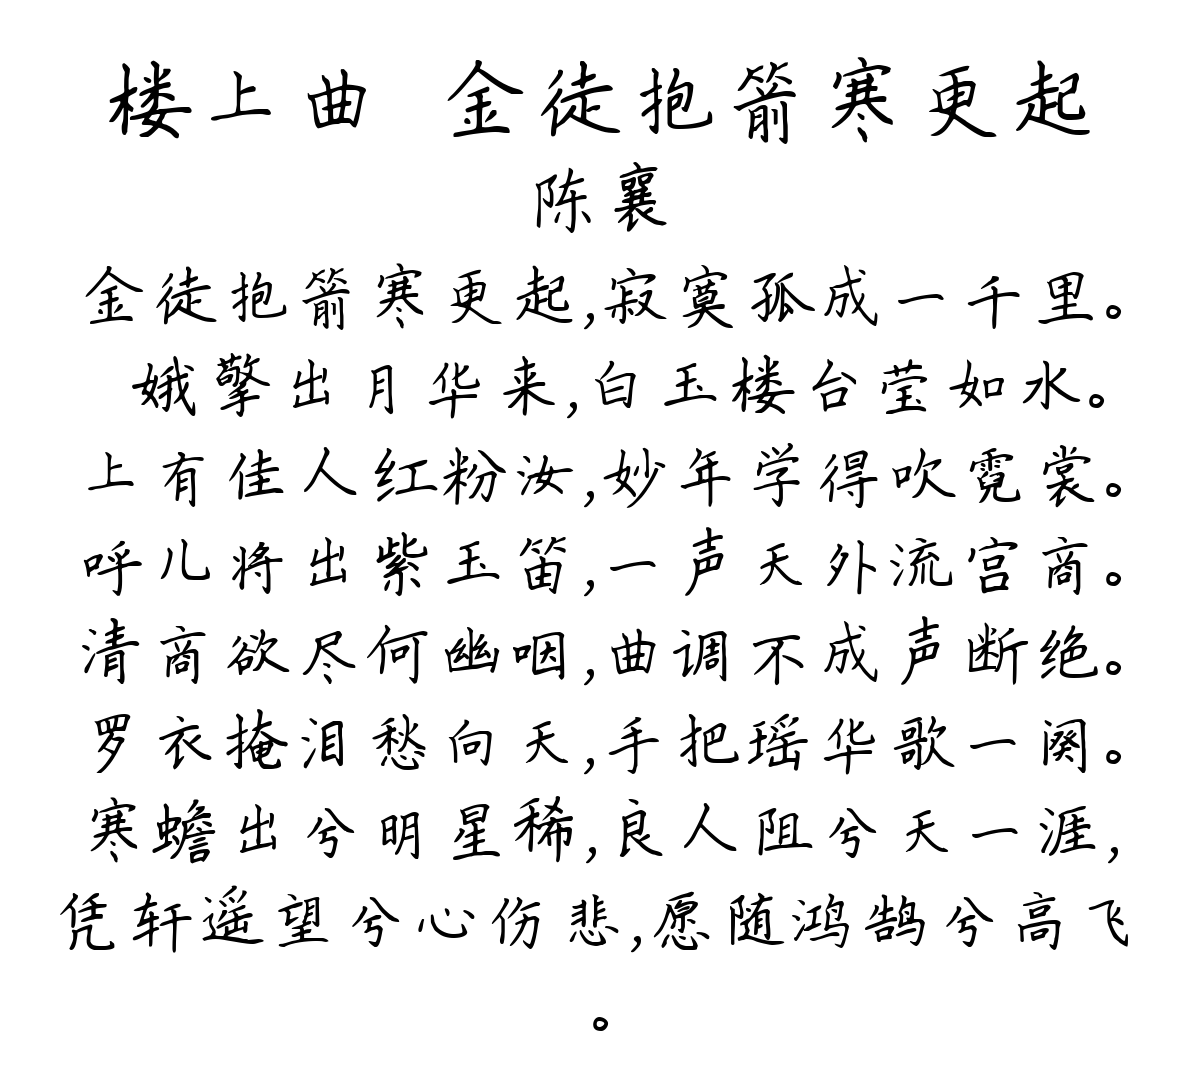 楼上曲 金徒抱箭寒更起
陈襄
金徒抱箭寒更起,寂寞孤成一千里。
娥擎出月华来,白玉楼台莹如水。
上有佳人红粉汝,妙年学得吹霓裳。
呼儿将出紫玉笛,一声天外流宫商。
清商欲尽何幽咽,曲调不成声断绝。
罗衣掩泪愁向天,手把瑶华歌一阕。
寒蟾出兮明星稀,良人阻兮天一涯,
凭轩遥望兮心伤悲,愿随鸿鹄兮高飞
。